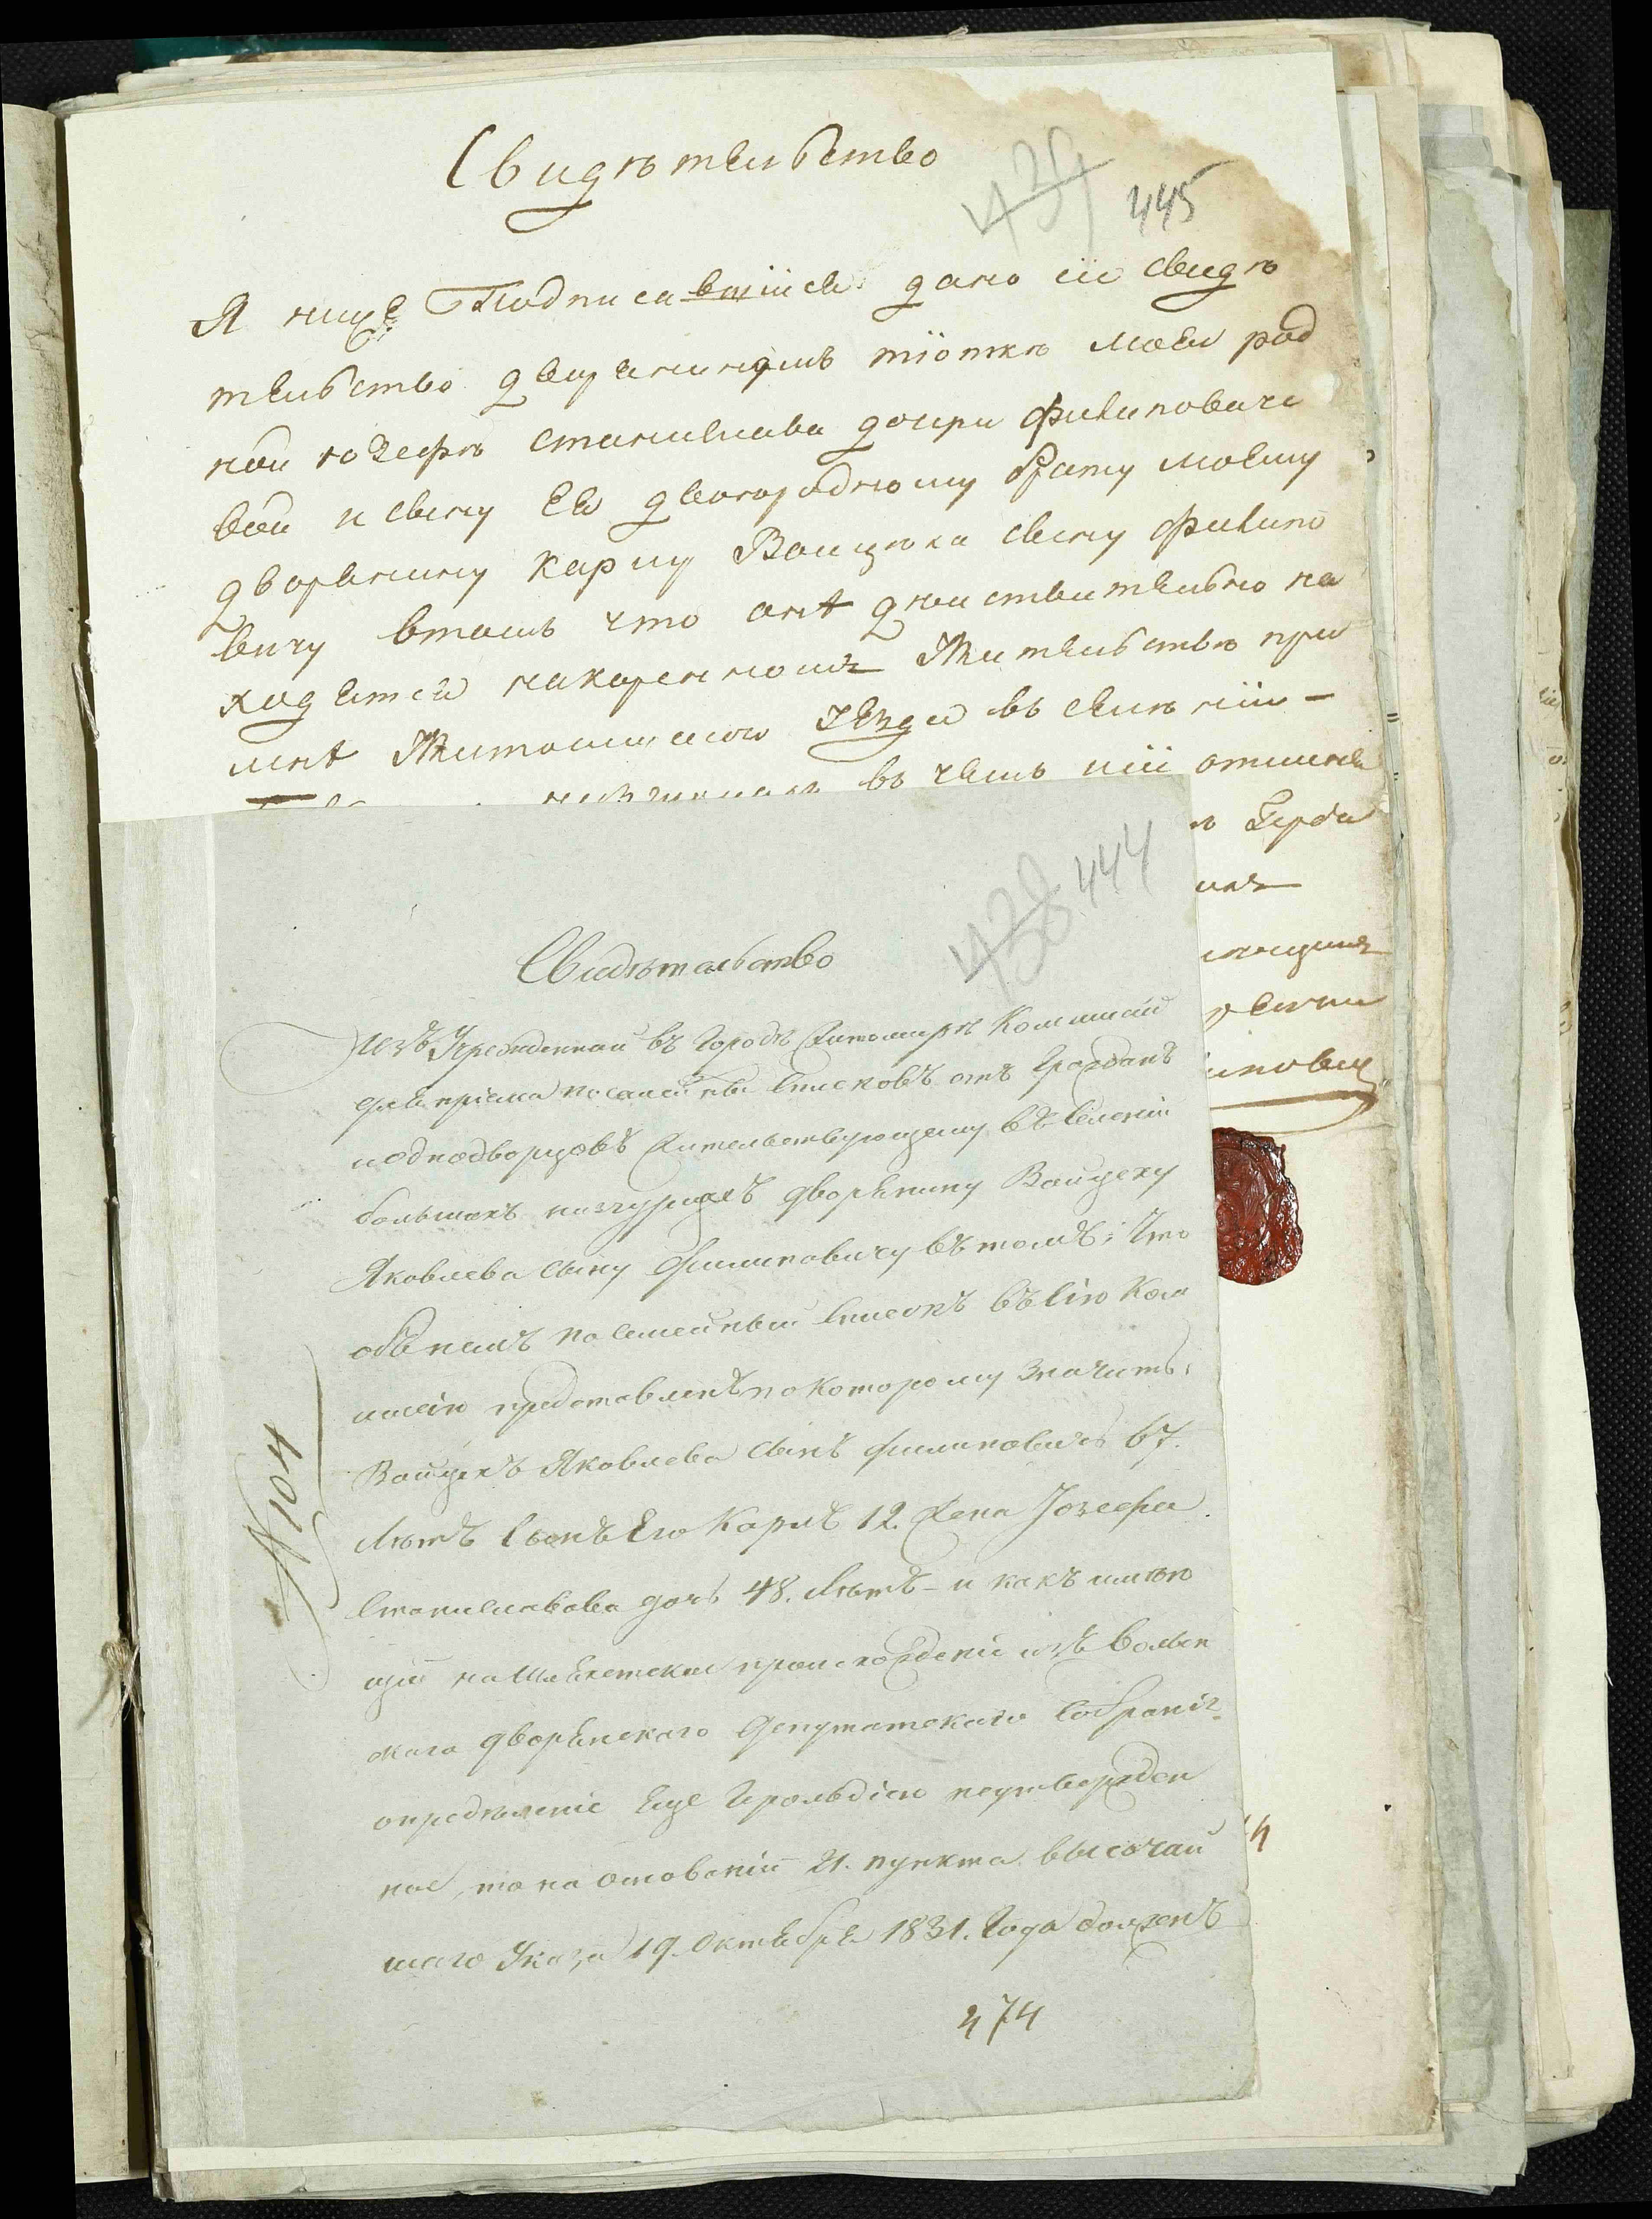 Свидѣтельство
439 445
Я ниже Подписавшійся даю сіе свидѣ
тельство дворянкѣ тіоткѣ моей род
ной юзефѣ станислава дочри Филиповиче
вой и сыну Ея двоюродному брату моему
дворянину карлу Войцѣха сыну Филипо
вичу втомъ что онѣ дѣйствительно на
ходятся накоренномъ Жительствѣ при
мнѣ Житомирского уезда въ селѣніи
въ чемъ
Герба
438 444
Свидѣтельство
Изъ Учрежденной въ Городѣ Житомирѣ Комиссіи
для пріема посемейныхъ списковъ отъ Гражданъ
иоднодворцовъ Жительствующему въ Селеніи
большихъ низгурцахъ дворянину Войцеху
Яковлева сыну Филиповичу въ томъ; что
объ немъ посемейный списокъ въ сію Ком
мисію представленъ покоторому значитъ:
Войцехъ Яковлева сынъ филиповичъ 67.
Лѣтъ Сынъ Его Карлъ 12. Жена Јозефа
Станиславова дочь 48. Лѣтъ - и какъ имѣю
щій на Шляхетское происхожденіе изъ Волын
скаго дворянскаго Депутатскаго Собранія
опредѣленіе Еще Герольдіею неутвержден
ное, то на основаніи 21. пункта высочай
шаго Указа 19. Октября 1831. Года долженъ
N 104
474